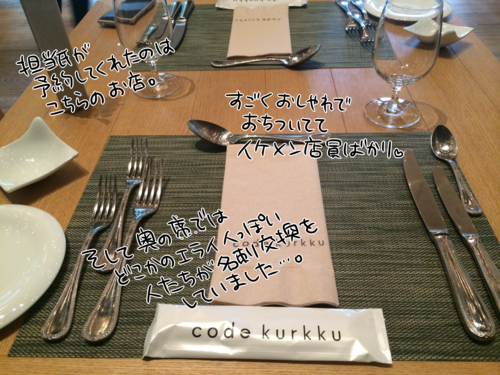 担当氏が
予約してくれたのは
こちらのお店。
すごくおしゃれで
おちついてて
イケメン店員ばかり。
そして奥の席では
どこかのエライ人っぽい
人たちが名刺交換を
していました…。
code kurkku
code kurkku